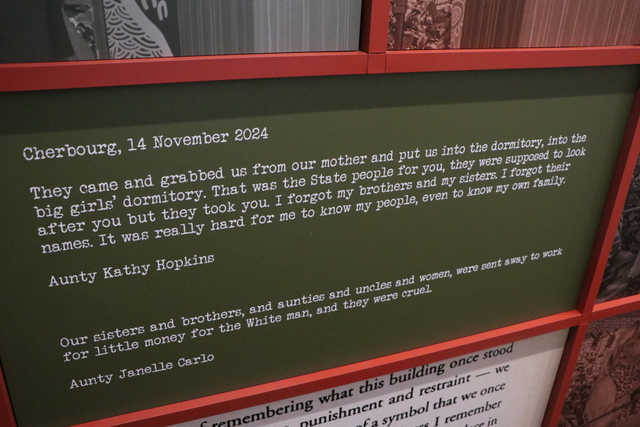 Cherbourg, 14 November 2024
They came and grabbed us from our mother and put us into the dormitory, into the
big girls' dormitory. That was the State people for you, they were supposed to look
after you but they took you. I forgot my brothers and my sisters. I forgot their
names. It was really hard for me to know my people, even to know my own family.
Aunty Kathy Hopkins
Our sisters and brothers, and aunties and uncles and women, were sent away to work
for little money for the White man, and they were cruel.
Aunty Janelle Carlo
of remembering what this building once stood
punishment and restraint — we
of a symbol that we once
I remember
in